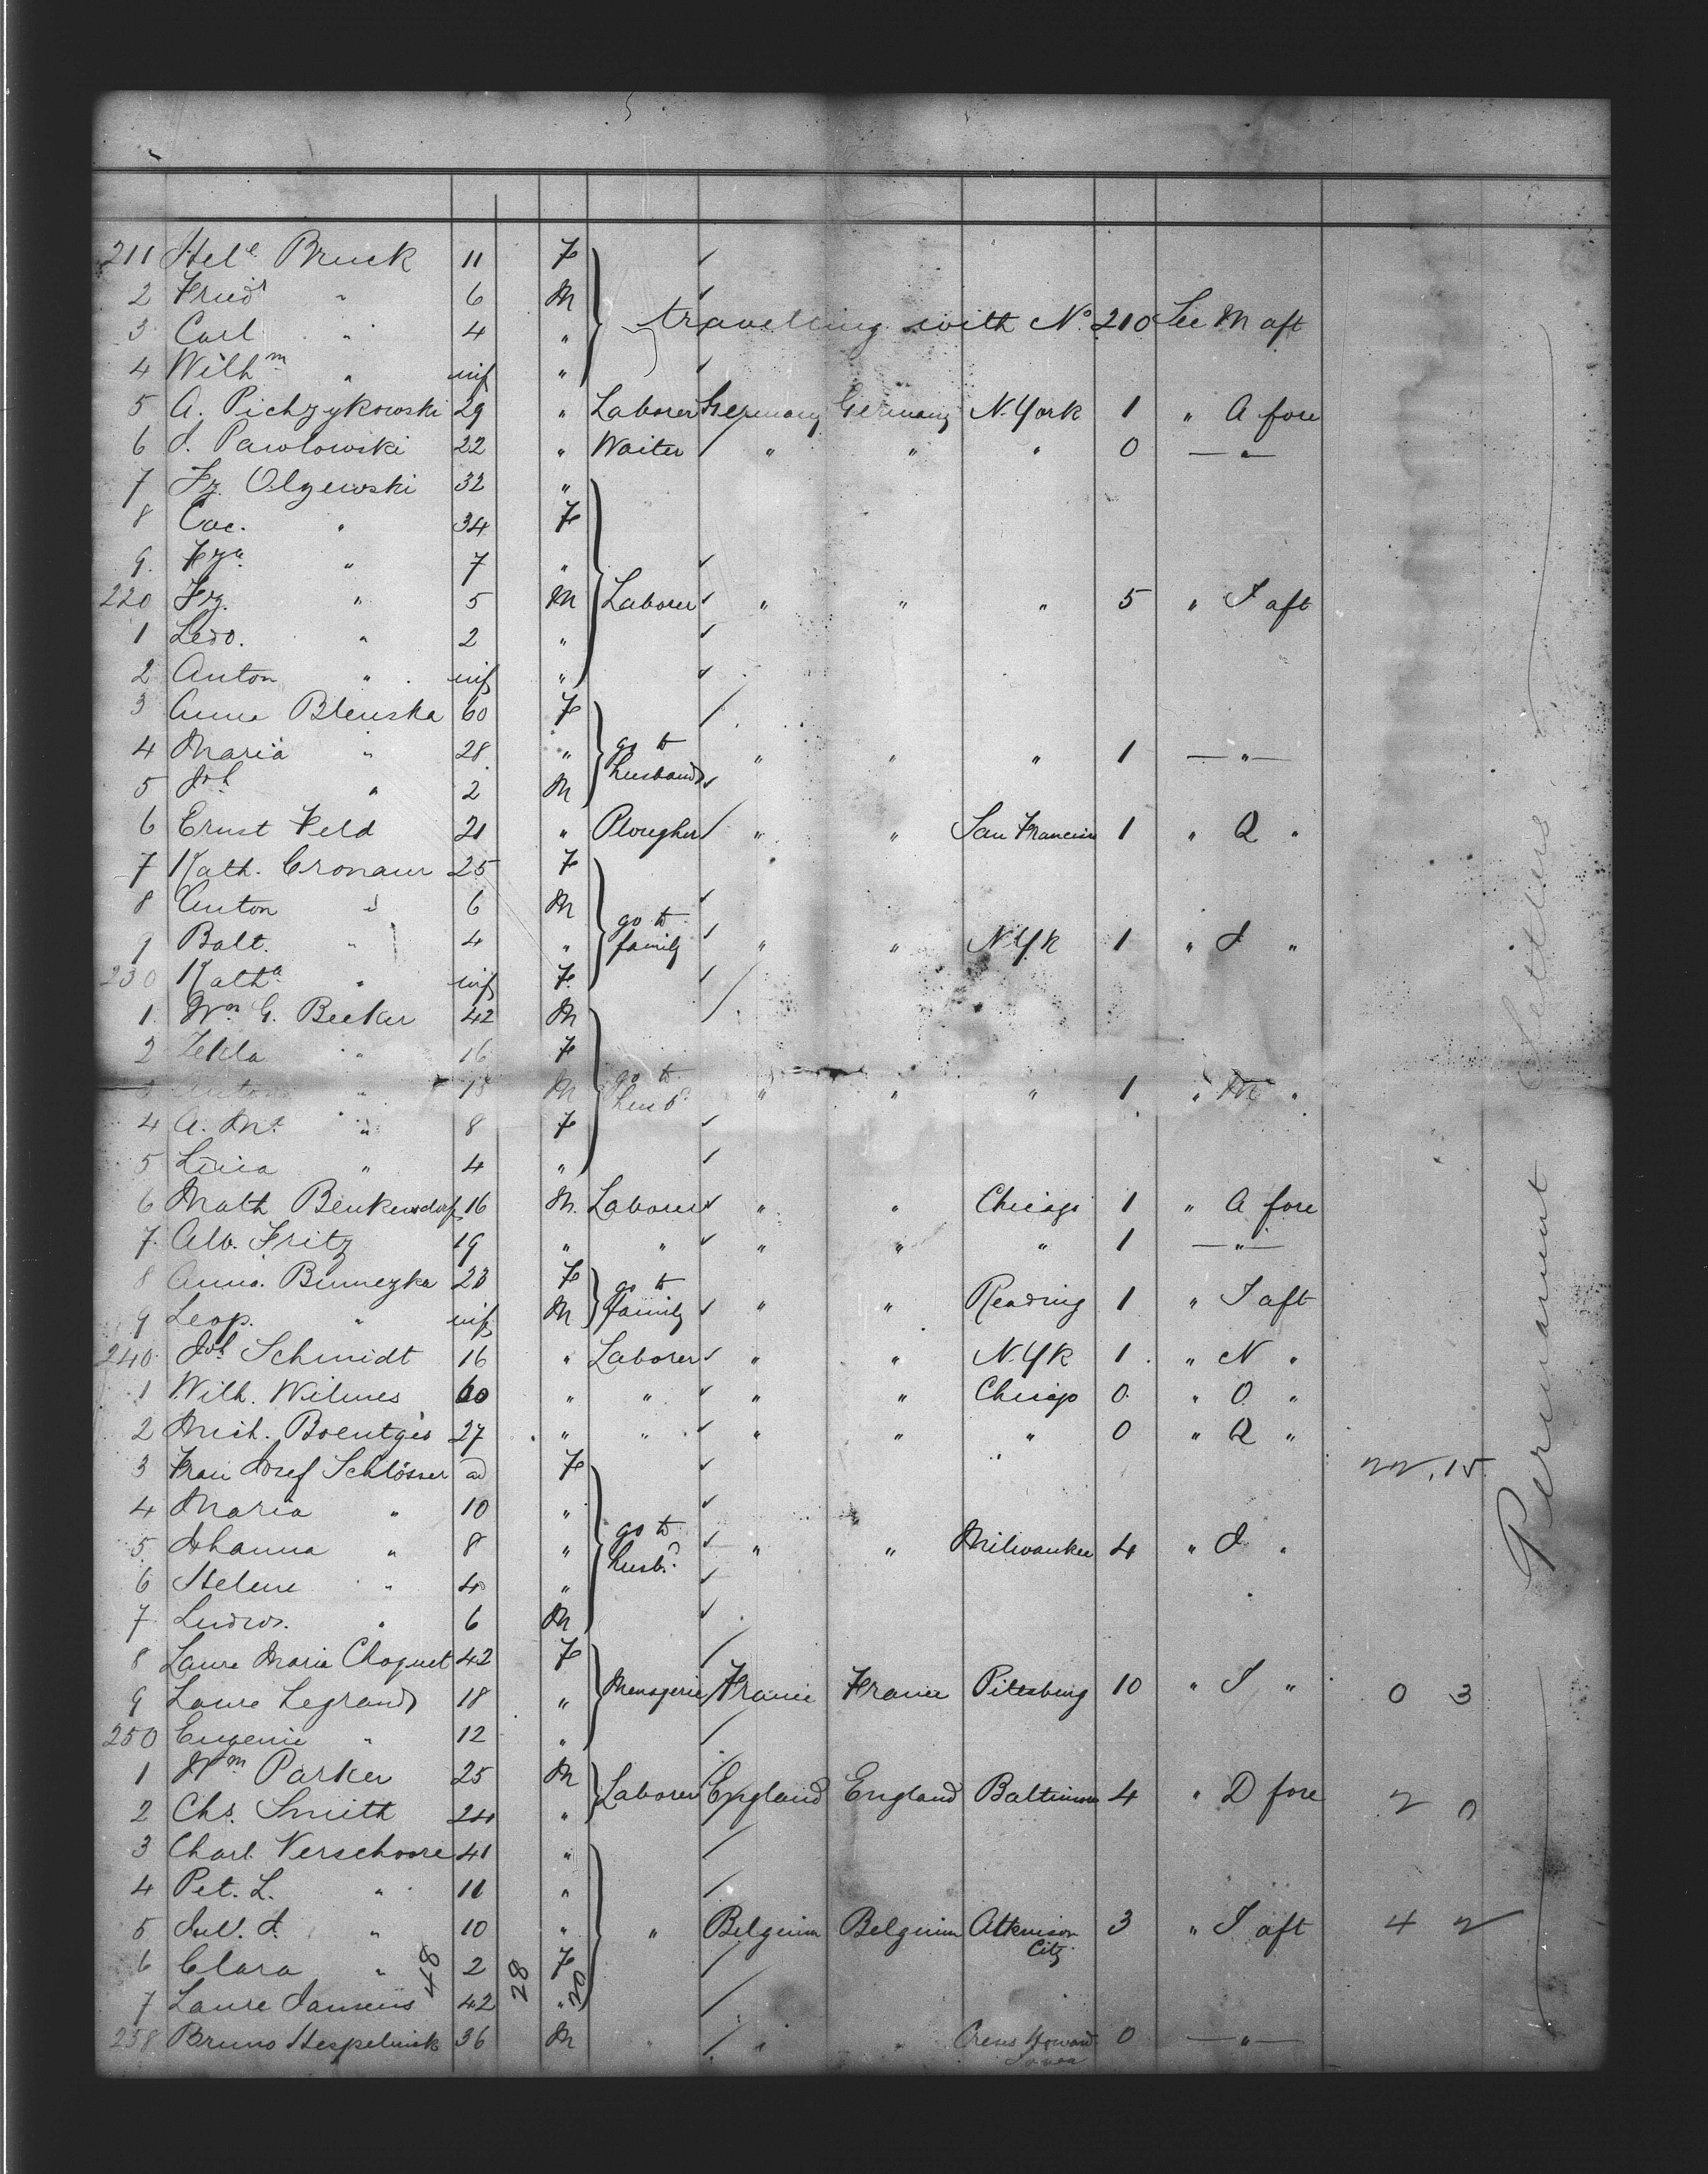 211 Hel.e Bruck 11 F
2 Friedr " 6 M
3 Carl " 4 " travelling with No. 210 See M aft
4 Wilhm " inf "
5 A. Pichzykowski 29 " Laborer Germany Germany N. York 1 " A fore
6 J. Pawlowski 22 " Waiter " " " 0 — " —
7 Fz. Olzewski 32 "
8 Cae. " 34 F
9 Fza " 7 "
220 Fz. " 5 M Laborer " " " 5 " I aft
1 Leo. " 2 "
2 Anton " inf "
3 Anna Blenska 60 F
4 Maria " 28 " go to husband " " " 1 — " —
5 Joh " 2 M
6 Ernst Feld 21 " Plougher " " San Francisco 1 " Q "
7 Kath. Cronaur 25 F
8 Anton " 6 M
9 Balt. " 4 " go to family " " N.Yk 1 " I "
230 Katha " inf F
1 Wm G. Becker 42 M
2 Tekla " 16 F
3 Anton " 15 M go to husbd " " " 1 " M "
4 A. Ma " 8 F
5 Lina " 4 "
6 Math Benkersdorf 16 M. Laborer " " Chicago 1 " A fore
7 Alb. Fritz 19 " " " " " 1 — " —
8 Anna. Binnezka 23 F
9 Leop. " inf M go to family " " Reading 1 " I aft
240 Joh Schmidt 16 " Laborer " " N.Yk 1 " N "
1 Wilh. Wilmes 60 " " " " Chicago 0 " O "
2 Mich. Boentges 27 " " " " " 0 " Q "
3 Frau Josef Schlösser ad F 22.15
4 Maria " 10 "
5 Johanna " 8 " go to husbd " " Milwaukee 4 " I "
6 Helene " 4 "
7 Ludw. " 6 M
8 Laure Maria Choquet 42 F
9 Laure Legrand 18 " Menagerie France France Pittsburg 10 " I " 0 3
250 Eugenie " 12 "
1 Wm Parker 25 M Laborer England England Baltimore 4 " D fore 2 0
2 Chs. Smith 24 "
3 Charl. Verschoore 41 "
4 Pet. L. " 11 "
5 Jul. J. " 10 " " Belgium Belgium Atkinson City 3 " I aft 4 2
6 Clara " 2 F
7 Laure Jansens 42 "
258 Bruno Hespelinck 36 M " " " 0 — " —
48 28 20
Permanent Settlers